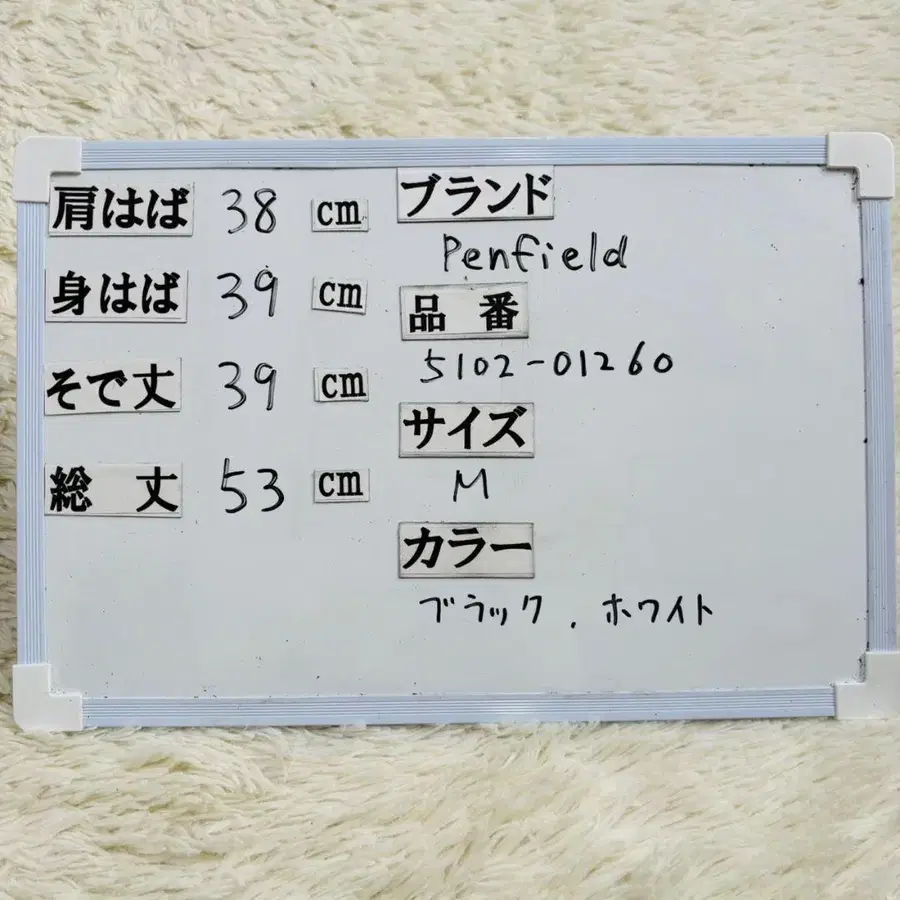 肩はば 38 cm
身はば 39 cm
そで丈 39 cm
総丈 53 cm
ブランド
Penfield
品番
5102-01260
サイズ
M
カラー
ブラック、ホワイト